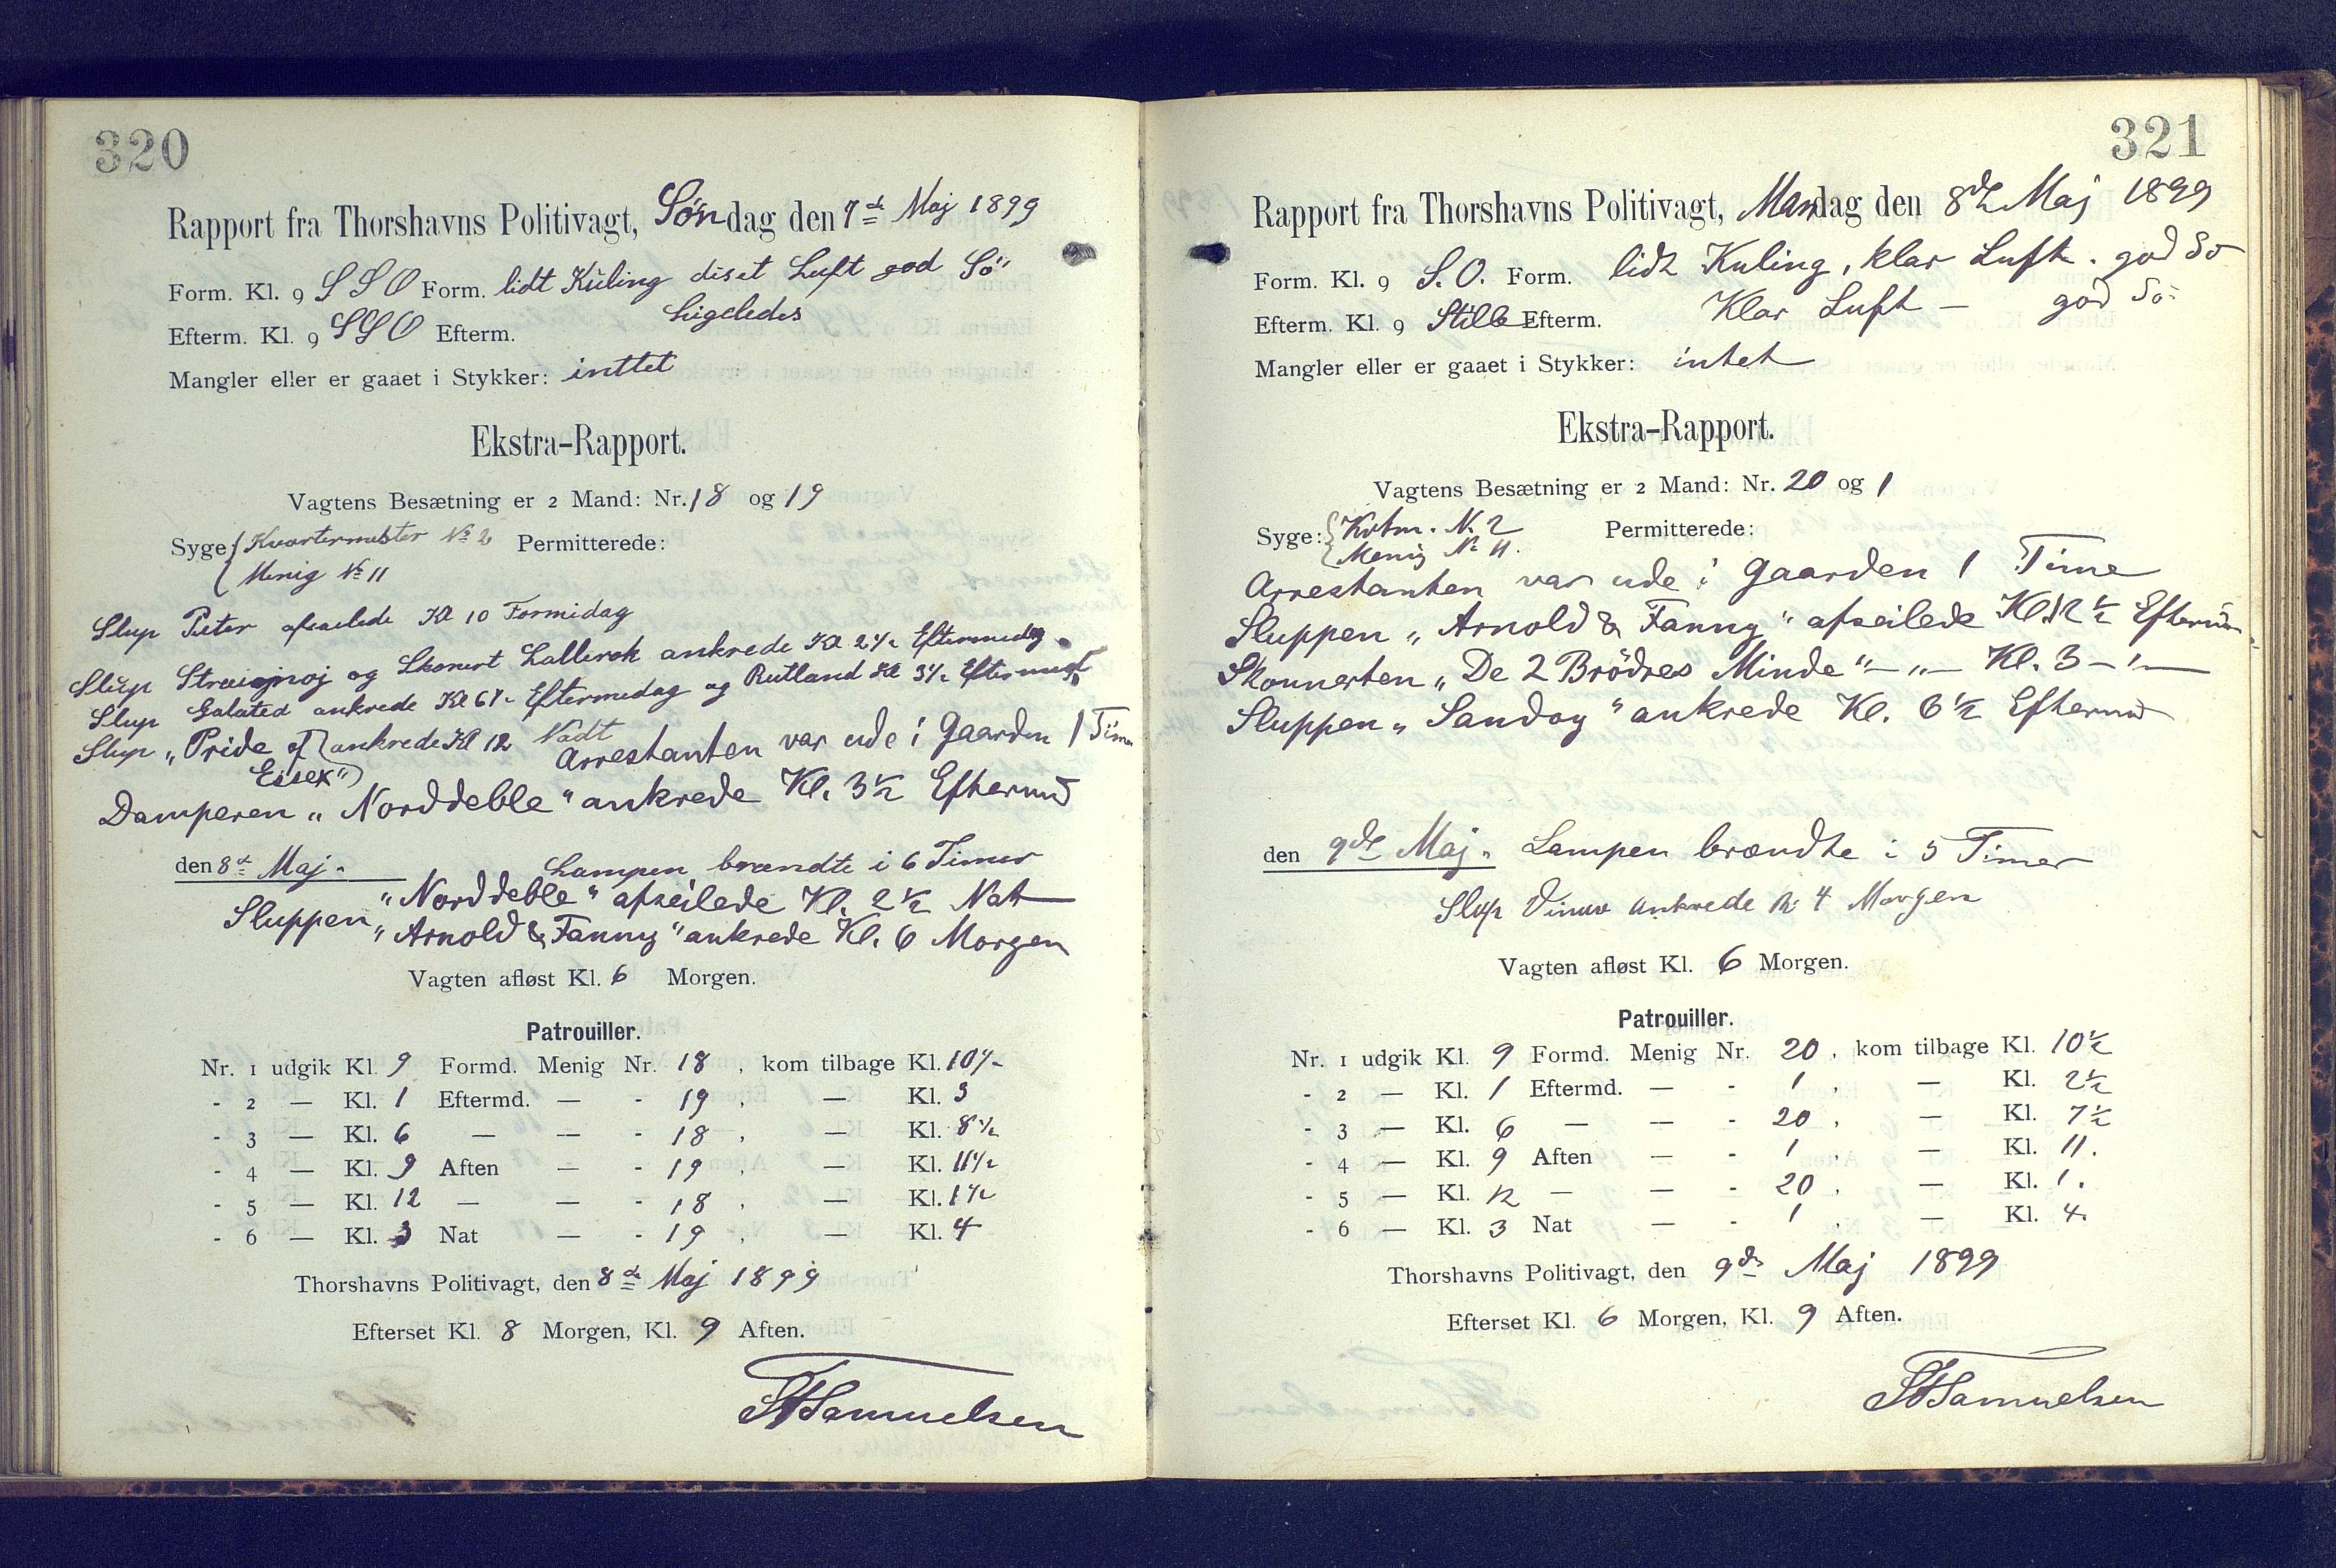 320
Rapport fra Thorshavns Politivagt, Søndag den 7de Maj 1899
Form. Kl. 9 SSO Form. lidt Kuling diset Luft god Sö
Efterm. Kl. 9 SSO Efterm. Ligeledes
Mangler eller er gaaet i Stykker: inttet
Ekstra-Rapport.
Vagtens Besætning er 2 Mand: Nr. 18 og 19
Syge { Kvartermester No 2 Permitterede:
Menig No 11
Slup Pieter afseilede Kl 10 Formidag
Slup og Skonert ankrede Kl 2½ Eftermedag.
Slup Galatea ankrede Kl 6½ Eftermedag og Rutland Kl 3½ Eftermedg
Slup „Pride of ankrede Kl 12 Nadt
Essex" Arrestanten var ude i Gaarden 1 Time
Damperen „Norddeble" ankrede Kl. 3½ Eftermd
den 8de Maj. Lampen brændte i 6 Timer
„Norddeble" afseilede Kl. 2½ Nat
Sluppen „Arnold & Fanny" ankrede Kl. 6 Morgen
Vagten afløst Kl. 6 Morgen.
Patrouiller.
Nr. 1 udgik Kl. 9 Formd. Menig Nr. 18, kom tilbage Kl. 10½
- 2 — Kl. 1 Eftermd. — - 19, — Kl. 3
- 3 — Kl. 6 — — - 18, — Kl. 8½
- 4 — Kl. 9 Aften — - 19, — Kl. 11½
- 5 — Kl. 12 — — - 18, — Kl. 1½
- 6 — Kl. 3 Nat — - 19, — Kl. 4
Thorshavns Politivagt, den 8de Maj 1899
Efterset Kl. 8 Morgen, Kl. 9 Aften.
Samuelsen
321
Rapport fra Thorshavns Politivagt, Mandag den 8de Maj 1899
Form. Kl. 9 S.O. Form. lidt Kuling, klar Luft. god Sö
Efterm. Kl. 9 Stille Efterm. Klar Luft — god Sö.
Mangler eller er gaaet i Stykker: intet
Ekstra-Rapport.
Vagtens Besætning er 2 Mand: Nr. 20 og 1
Syge: { Kvtm. N. 2 Permitterede:
Menig No 11.
Arrestanten var ude i Gaarden 1 Time
Sluppen „Arnold & Fanny" afseilede Kl. 12½ Efterm
Skonnerten „De 2 Brödres Minde" — „ — Kl. 3 — „ —
Sluppen „Sandoy" ankrede Kl. 6½ Eftermd
den 9de Maj. Lampen brændte i 5 Timer
Slup ankrede Kl 4 Morgen
Vagten afløst Kl. 6 Morgen.
Patrouiller.
Nr. 1 udgik Kl. 9 Formd. Menig Nr. 20, kom tilbage Kl. 10½
- 2 — Kl. 1 Eftermd. — - 1, — Kl. 2½
- 3 — Kl. 6 — — - 20, — Kl. 7½
- 4 — Kl. 9 Aften — - 1, — Kl. 11.
- 5 — Kl. 12 — — - 20, — Kl. 1.
- 6 — Kl. 3 Nat — - 1, — Kl. 4.
Thorshavns Politivagt, den 9de Maj 1899
Efterset Kl. 6 Morgen, Kl. 9 Aften.
Samuelsen